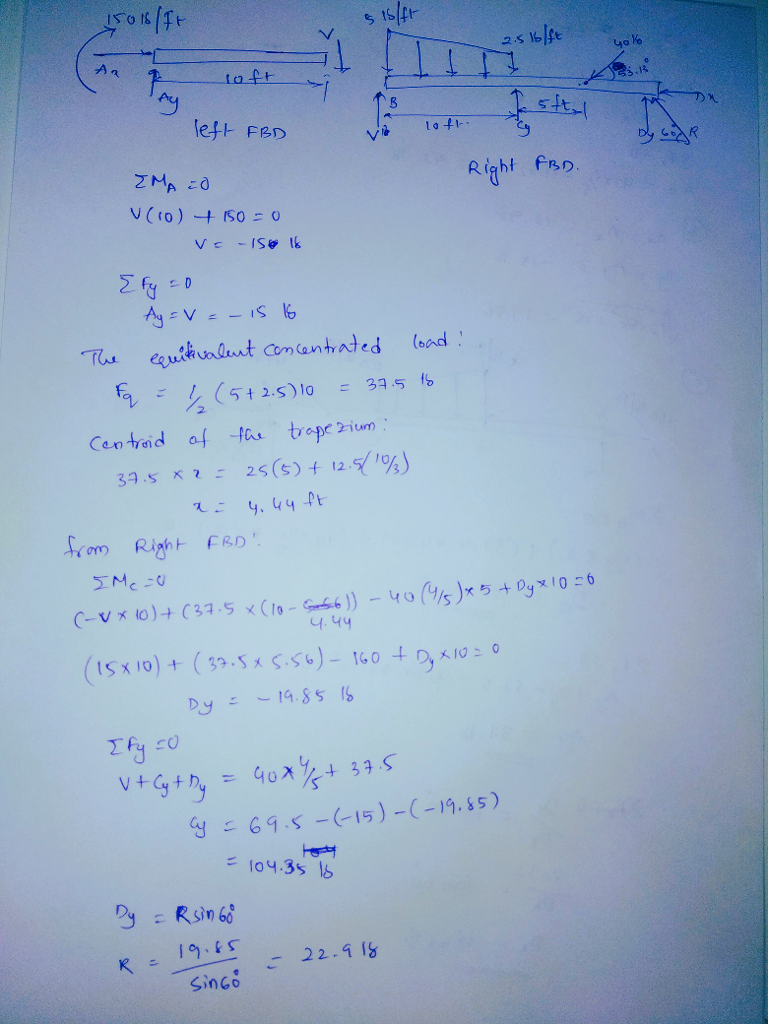 150 lb/ft
Ax
Ay
10 ft
V
left FBD
5 lb/ft
2.5 lb/ft
40 lb
53.13°
B
V
10 ft.
Cy
5 ft
Dy
60°
R
Dx
Right FBD.
ΣMA = 0
V(10) + 150 = 0
V = -15 lb
ΣFy = 0
Ay = V = -15 lb
The equitivalent concentrated load:
Fq = 1/2 (5+2.5)10 = 37.5 lb
Centroid of the trapezium:
37.5 × x = 25(5) + 12.5(10/3)
x = 4.44 ft
from Right FBD:
ΣMc = 0
(-V × 10) + (37.5 × (10 - 4.44)) - 40(4/5) × 5 + Dy × 10 = 0
(15×10) + (37.5 × 5.56) - 160 + Dy × 10 = 0
Dy = -19.85 lb
ΣFy = 0
V + Cy + Dy = 40 × 4/5 + 37.5
Cy = 69.5 - (-15) - (-19.85)
= 104.35 lb
Dy = R sin 60°
R = 19.85 / sin 60° = 22.9 lb